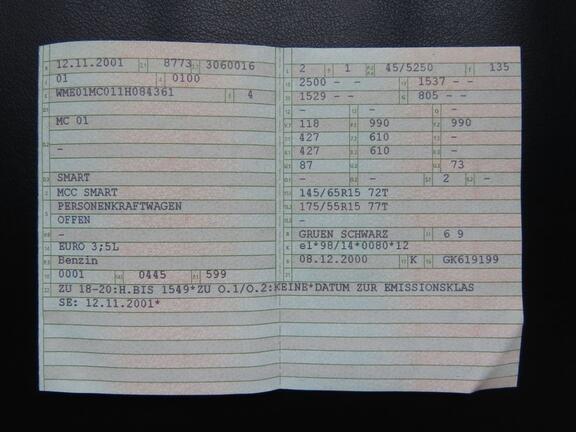 12.11.2001 8773 3060016
01 0100
WME01MC011H084361 4
MC 01
-
SMART
MCC SMART
PERSONENKRAFTWAGEN
OFFEN
-
EURO 3;5L
Benzin
0001 0445 599
2 1 45/5250 135
2500 - - 1537 - -
1529 - - 805 - -
- - -
118 990 990
427 610 -
427 610 -
87 73
- - 2 -
145/65R15 72T
175/55R15 77T
-
GRUEN SCHWARZ 6 9
e1*98/14*0080*12
08.12.2000 K GK619199
ZU 18-20:H.BIS 1549*ZU O.1/O.2:KEINE*DATUM ZUR EMISSIONSKLAS
SE: 12.11.2001*